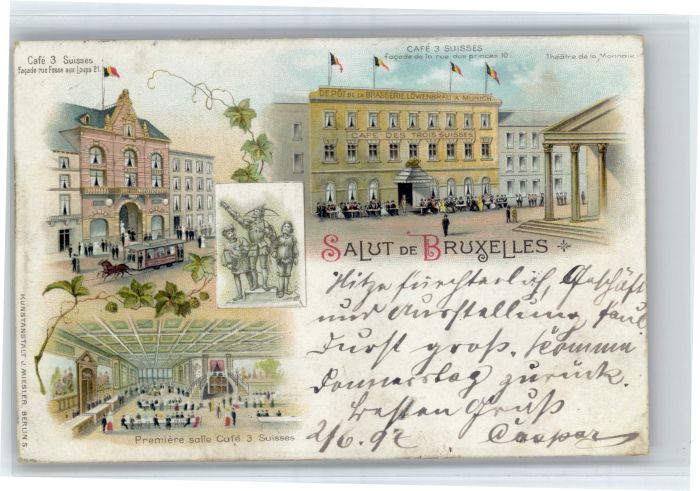 Café 3 Suisses
Façade rue Fosse aux Loups 21
CAFÉ 3 SUISSES
façade de la rue des princes 10
Théâtre de la Monnaie
DEPÔT DE LA BRASSERIE LÖWENBRÄU A MUNICH
CAFÉ DES TROIS SUISSES
SALUT DE BRUXELLES
Hitze fürchterlich, Geschäft
und Ausstellung faul
Durst groß. Komme
Donnerstag zurück.
Besten Gruß
2/6. 97 Caspar
Première salle Café 3 Suisses
KUNSTANSTALT J. MIESLER, BERLIN S.